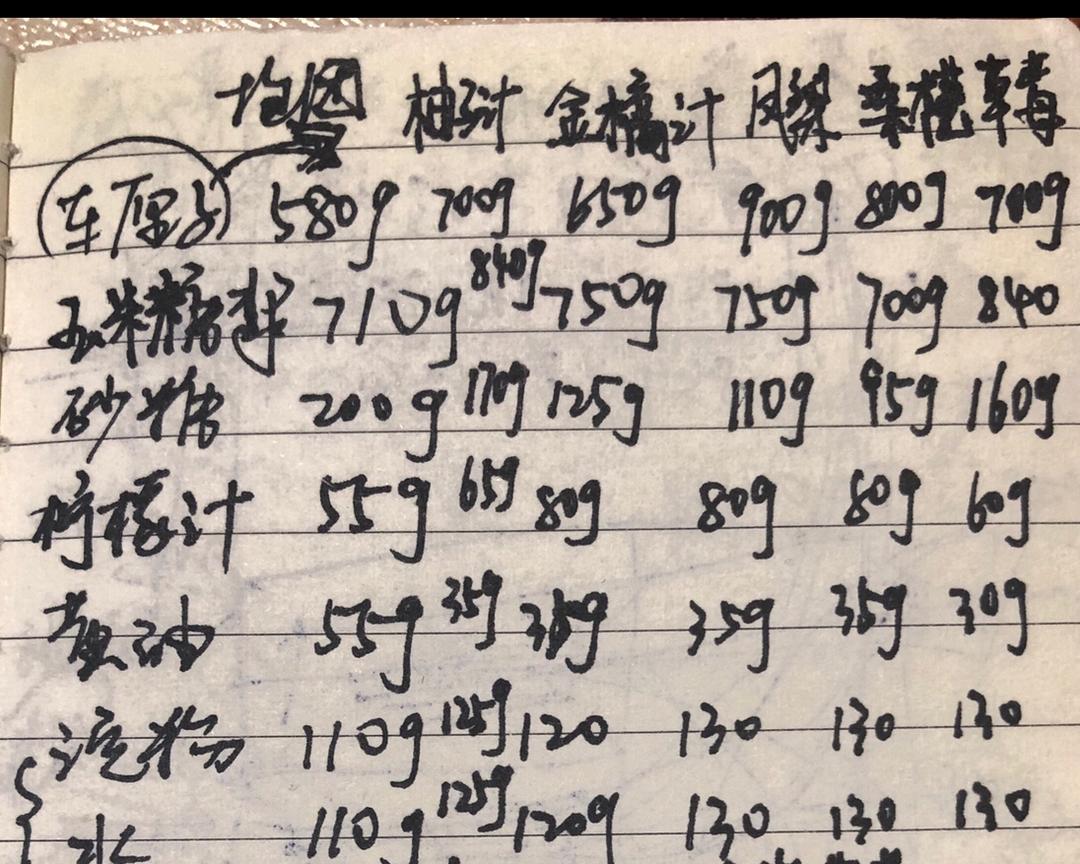 柚汁 金橘汁 凤梨 桑椹 草莓
车厘子 580g 700g 650g 900g 800g 700g
玉米糖浆 710g 840g 750g 750g 700g 840
砂糖 200g 170g 125g 110g 95g 160g
柠檬汁 55g 65g 80g 80g 80g 60g
黄油 55g 35g 35g 35g 35g 30g
淀粉 110g 125g 120 130 130 130
水 110g 125g 120g 130 130 130